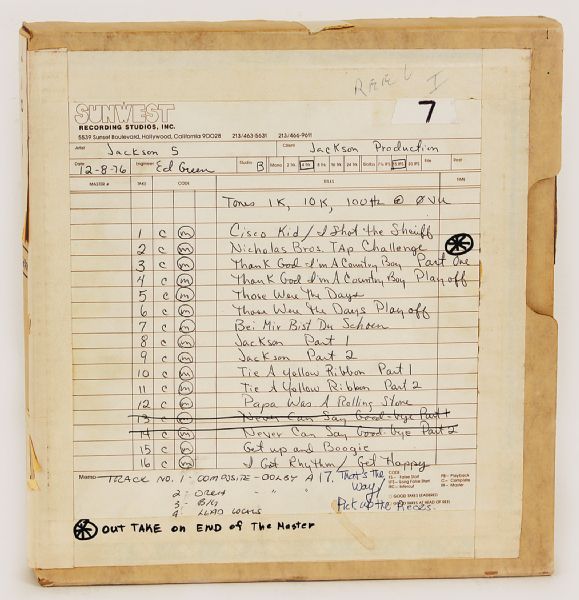 REEL I
7
SUNWEST
RECORDING STUDIOS, INC.
5539 Sunset Boulevard, Hollywood, California 90028 213/463-5631 213/466-9611
Artist Jackson 5 Client Jackson Production
Date 12-8-76 Engineer Ed Green Studio B Mono 2 Trk. 4 Trk. 8 Trk. 16 Trk. 24 Trk. 7½ IPS 15 IPS
MASTER # TAKE CODE TITLES TIME
Tones 1K, 10K, 100Hz @ 0VU
1 C m Cisco Kid / I Shot the Sheriff
2 C m Nicholas Bros. Tap Challenge
3 C m Thank God I'm A Country Boy Part One
4 C m Thank God I'm A Country Boy Play off
5 C m Those Were the Days
6 C m Those Were the Days Play off
7 C m Bei Mir Bist Du Schoen
8 C m Jackson Part 1
9 C m Jackson Part 2
10 C m Tie A Yellow Ribbon Part 1
11 C m Tie A Yellow Ribbon Part 2
12 C m Papa Was A Rolling Stone
13 C m Never Can Say Good-bye Part 1
14 C m Never Can Say Good-bye Part 2
15 C m Get up and Boogie
16 C m I Got Rhythm / Get Happy
Memo TRACK NO. 1 - COMPOSITE - DOLBY A 17. That's The Way/
2 - ORCH " "
3 - BKG
4 - LEAD VOCALS
Pick up the Pieces
CODE
FS — False Start PB — Playback
LFS — Long False Start C — Complete
INC — Intercut M — Master
TONES LEADERED
TONES AT HEAD OF REEL
OUT TAKE on END of The Master